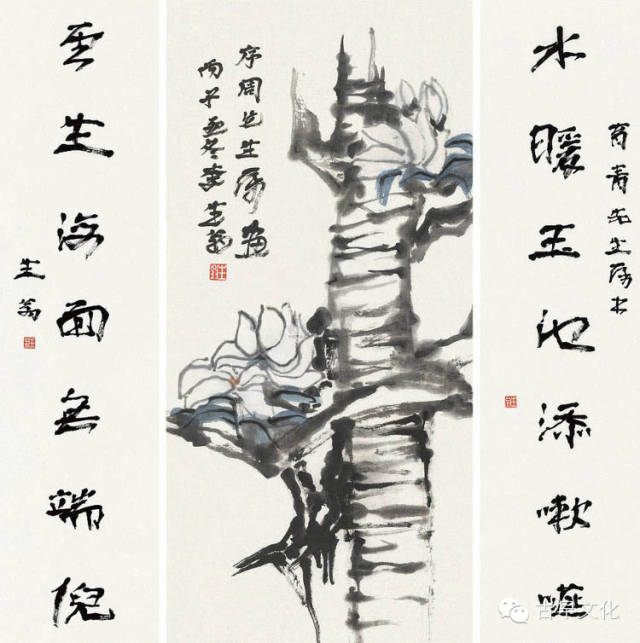 水暖玉池添漱嚥
育青先生属书
序周先生属画
丙子冬李生翁
云生海面無端倪
生翁
文化